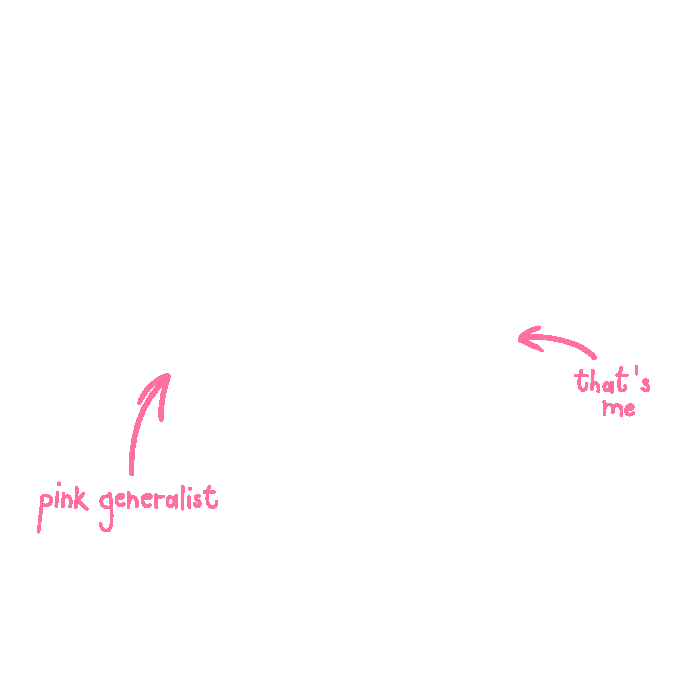 that's
me
pink generalist